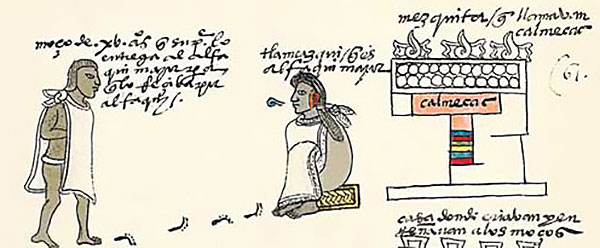 moço de .xv. aºs q su pe lo
entrega al alfa
qui mayor
alfaqui.
tlamazqui / q es
alfaqui mayor
mezquita / q llamavan
calmecac
calmecac
61
casa donde criavan y en
señavan a los moços